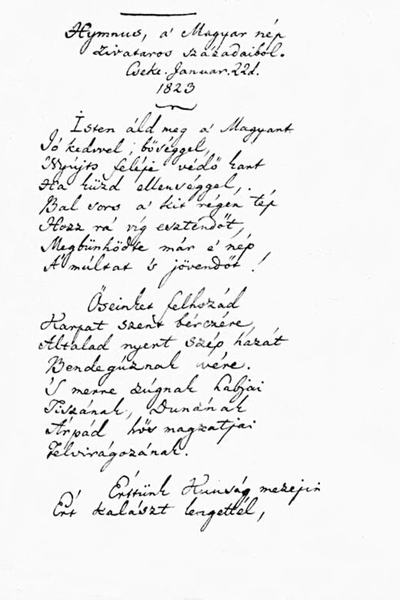 Hymnus, a' Magyar nép
zivataros századaiból.
Cseke. Januar. 22d.
1823
Isten áld meg a' Magyart
Jó kedvvel, bőséggel,
Nyújts feléje védő kart
Ha küzd ellenséggel,
Bal sors a' kit régen tép
Hozz rá víg esztendőt,
Megbünhődte már e' nép
A' múltat 's jövendőt!
Őseinket felhozád
Kárpát szent bérczére,
Általad nyert szép hazát
Bendegúznak vére.
'S merre zúgnak habjai
Tiszának, Dunának
Árpád hős magzatjai
Felvirágozának.
Értünk Kunság mezejin
Ért kalászt lengettél,